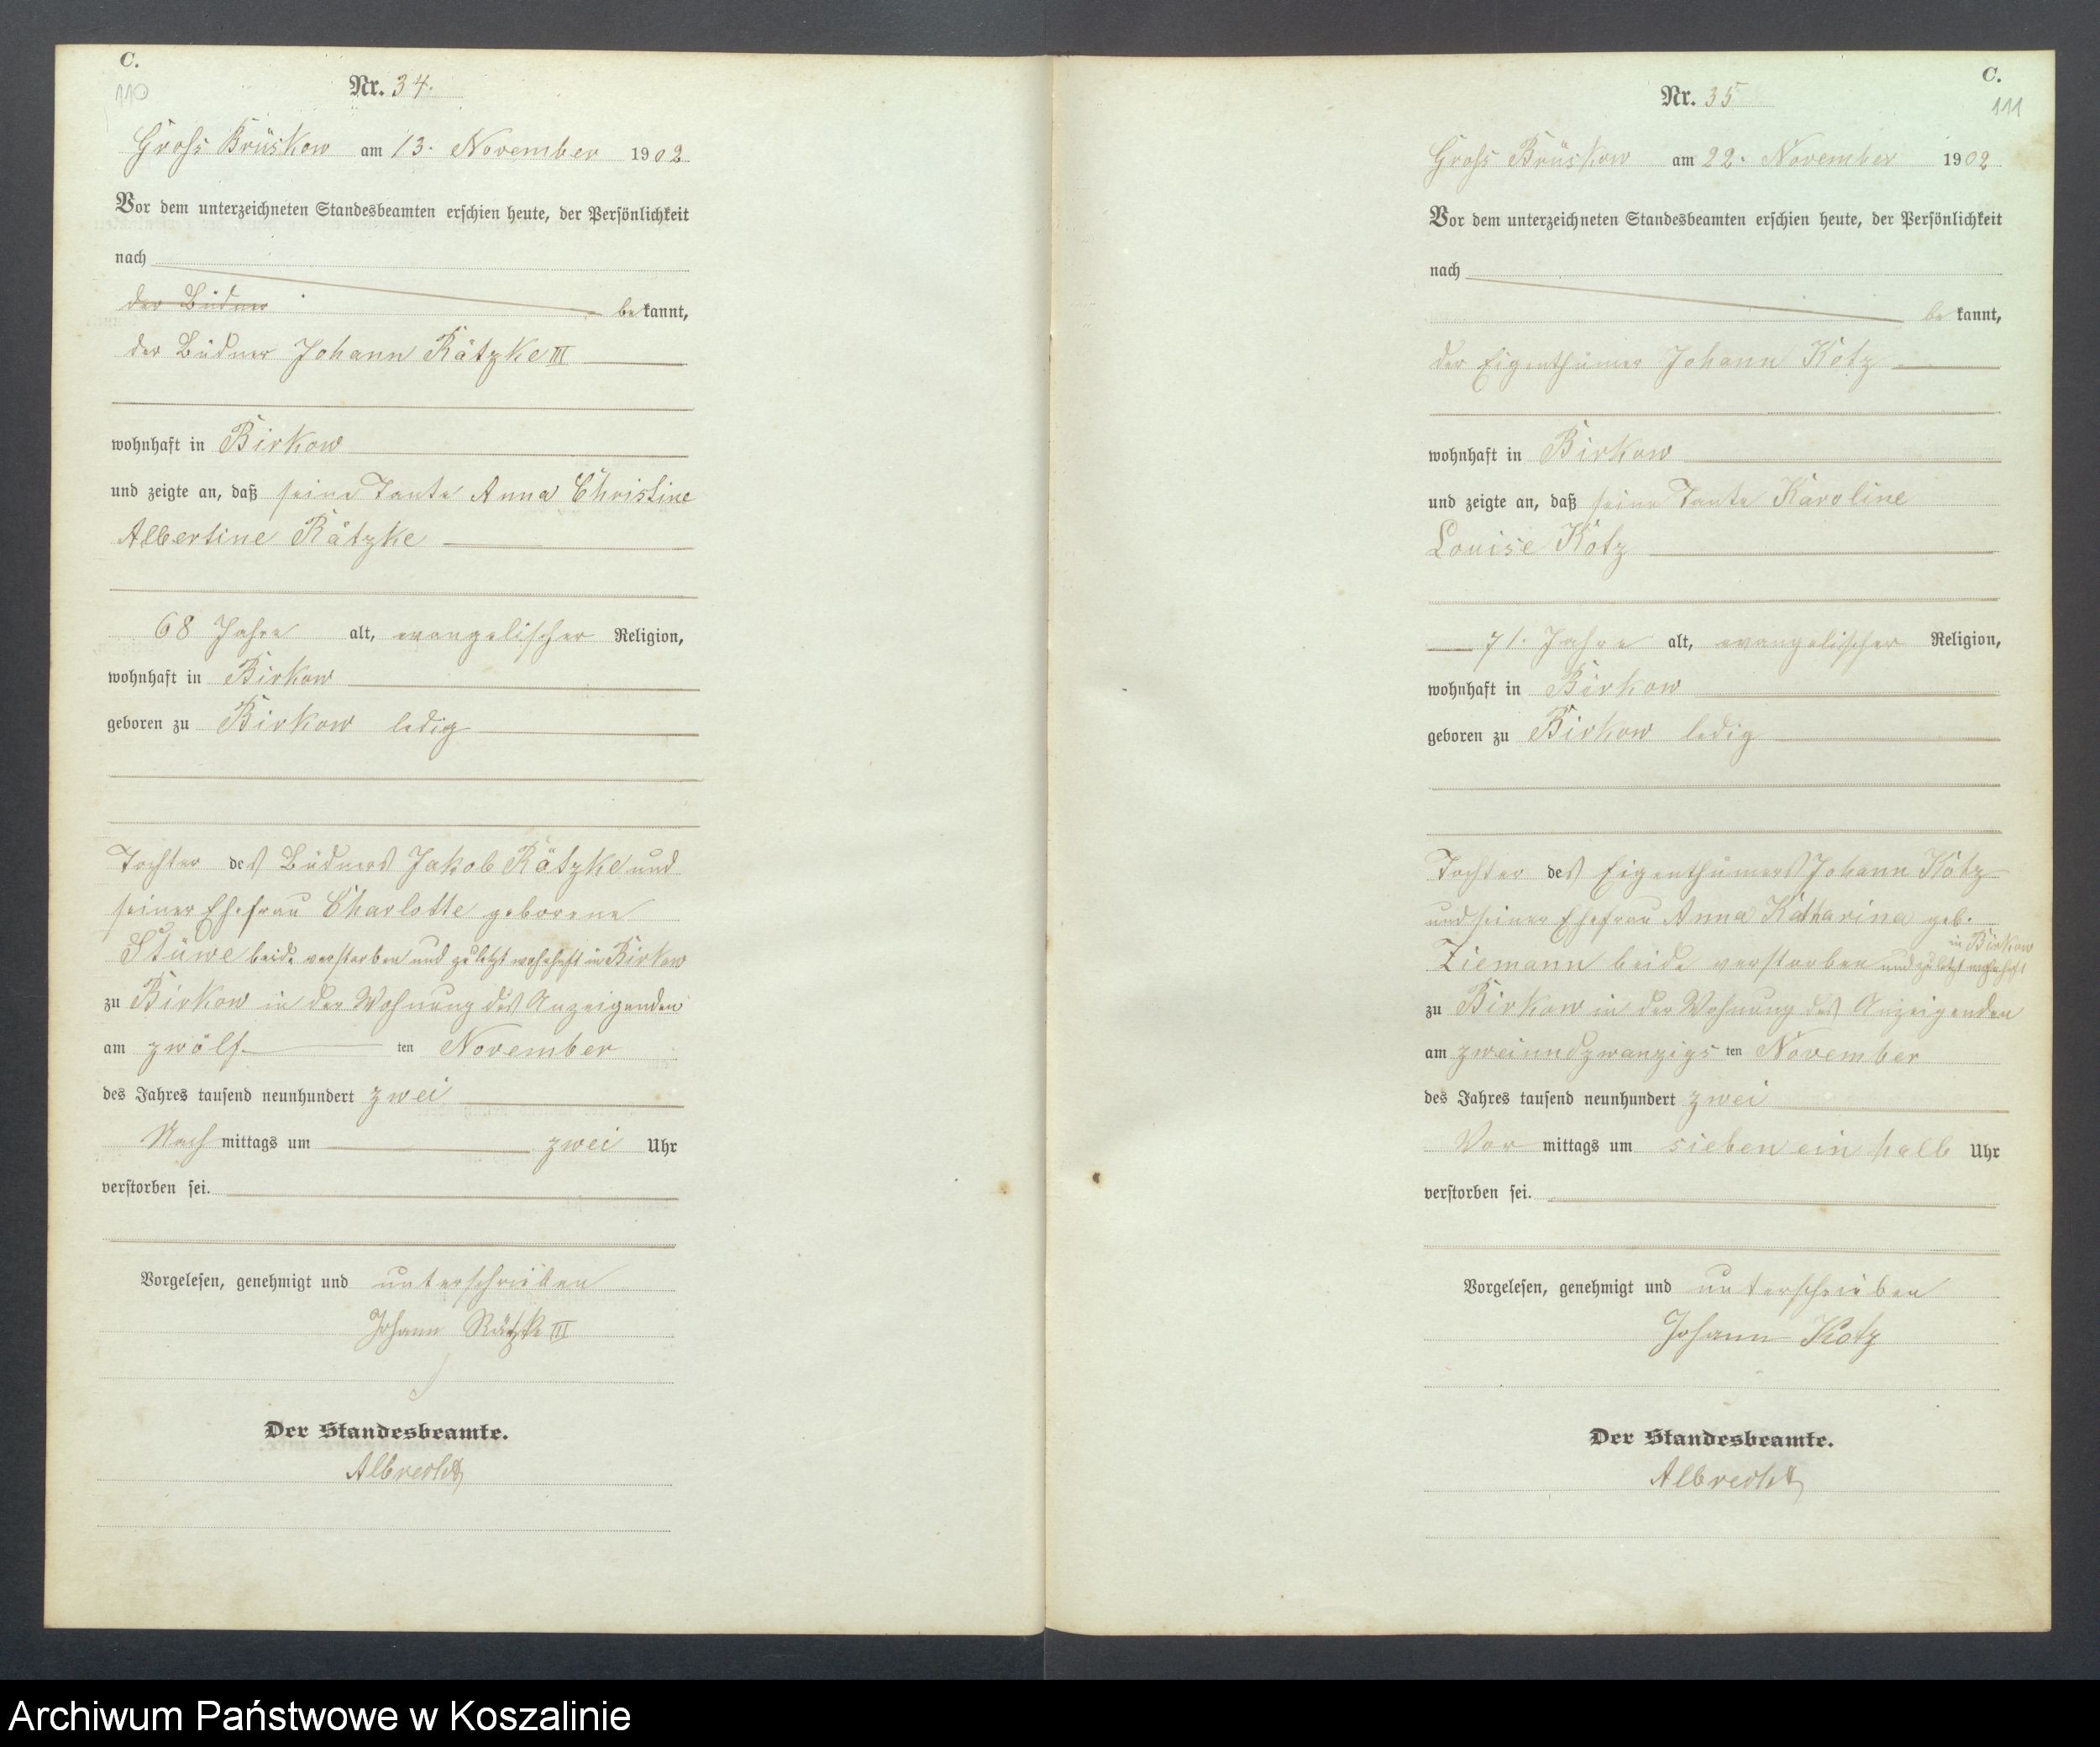 C.
110
Nr. 34.
Gross Brüskow am 13. November 1902
Vor dem unterzeichneten Standesbeamten erschien heute, der Persönlichkeit
nach
der Büdner bekannt,
der Büdner Johann Rätzke III
wohnhaft in Birkow
und zeigte an, daß seine Tante Anna Christine
Albertine Rätzke
68 Jahre alt, evangelischer Religion,
wohnhaft in Birkow
geboren zu Birkow ledig
Tochter des Büdners Jakob Rätzke und
seiner Ehefrau Charlotte geborene
Stüwe beide verstorben und zuletzt wohnhaft in Birkow
zu Birkow in der Wohnung des Anzeigenden
am zwölf ten November
des Jahres tausend neunhundert zwei
Nach mittags um zwei Uhr
verstorben sei.
Vorgelesen, genehmigt und unterschrieben
Johann Rätzke III
Der Standesbeamte.
Albrecht
C.
111
Nr. 35
Gross Brüskow am 22. November 1902
Vor dem unterzeichneten Standesbeamten erschien heute, der Persönlichkeit
nach
bekannt,
der Eigenthümer Johann Kotz
wohnhaft in Birkow
und zeigte an, daß seine Tante Karoline
Louise Kotz
71. Jahre alt, evangelischer Religion,
wohnhaft in Birkow
geboren zu Birkow ledig
Tochter des Eigenthümers Johann Kotz
und seiner Ehefrau Anna Katharina geb.
in Birkow
Ziemann beide verstorben und zuletzt wohnhaft
zu Birkow in der Wohnung des Anzeigenden
am zweiundzwanzigs ten November
des Jahres tausend neunhundert zwei
Vor mittags um sieben ein halb Uhr
verstorben sei.
Vorgelesen, genehmigt und unterschrieben
Johann Kotz
Der Standesbeamte.
Albrecht
Archiwum Państwowe w Koszalinie